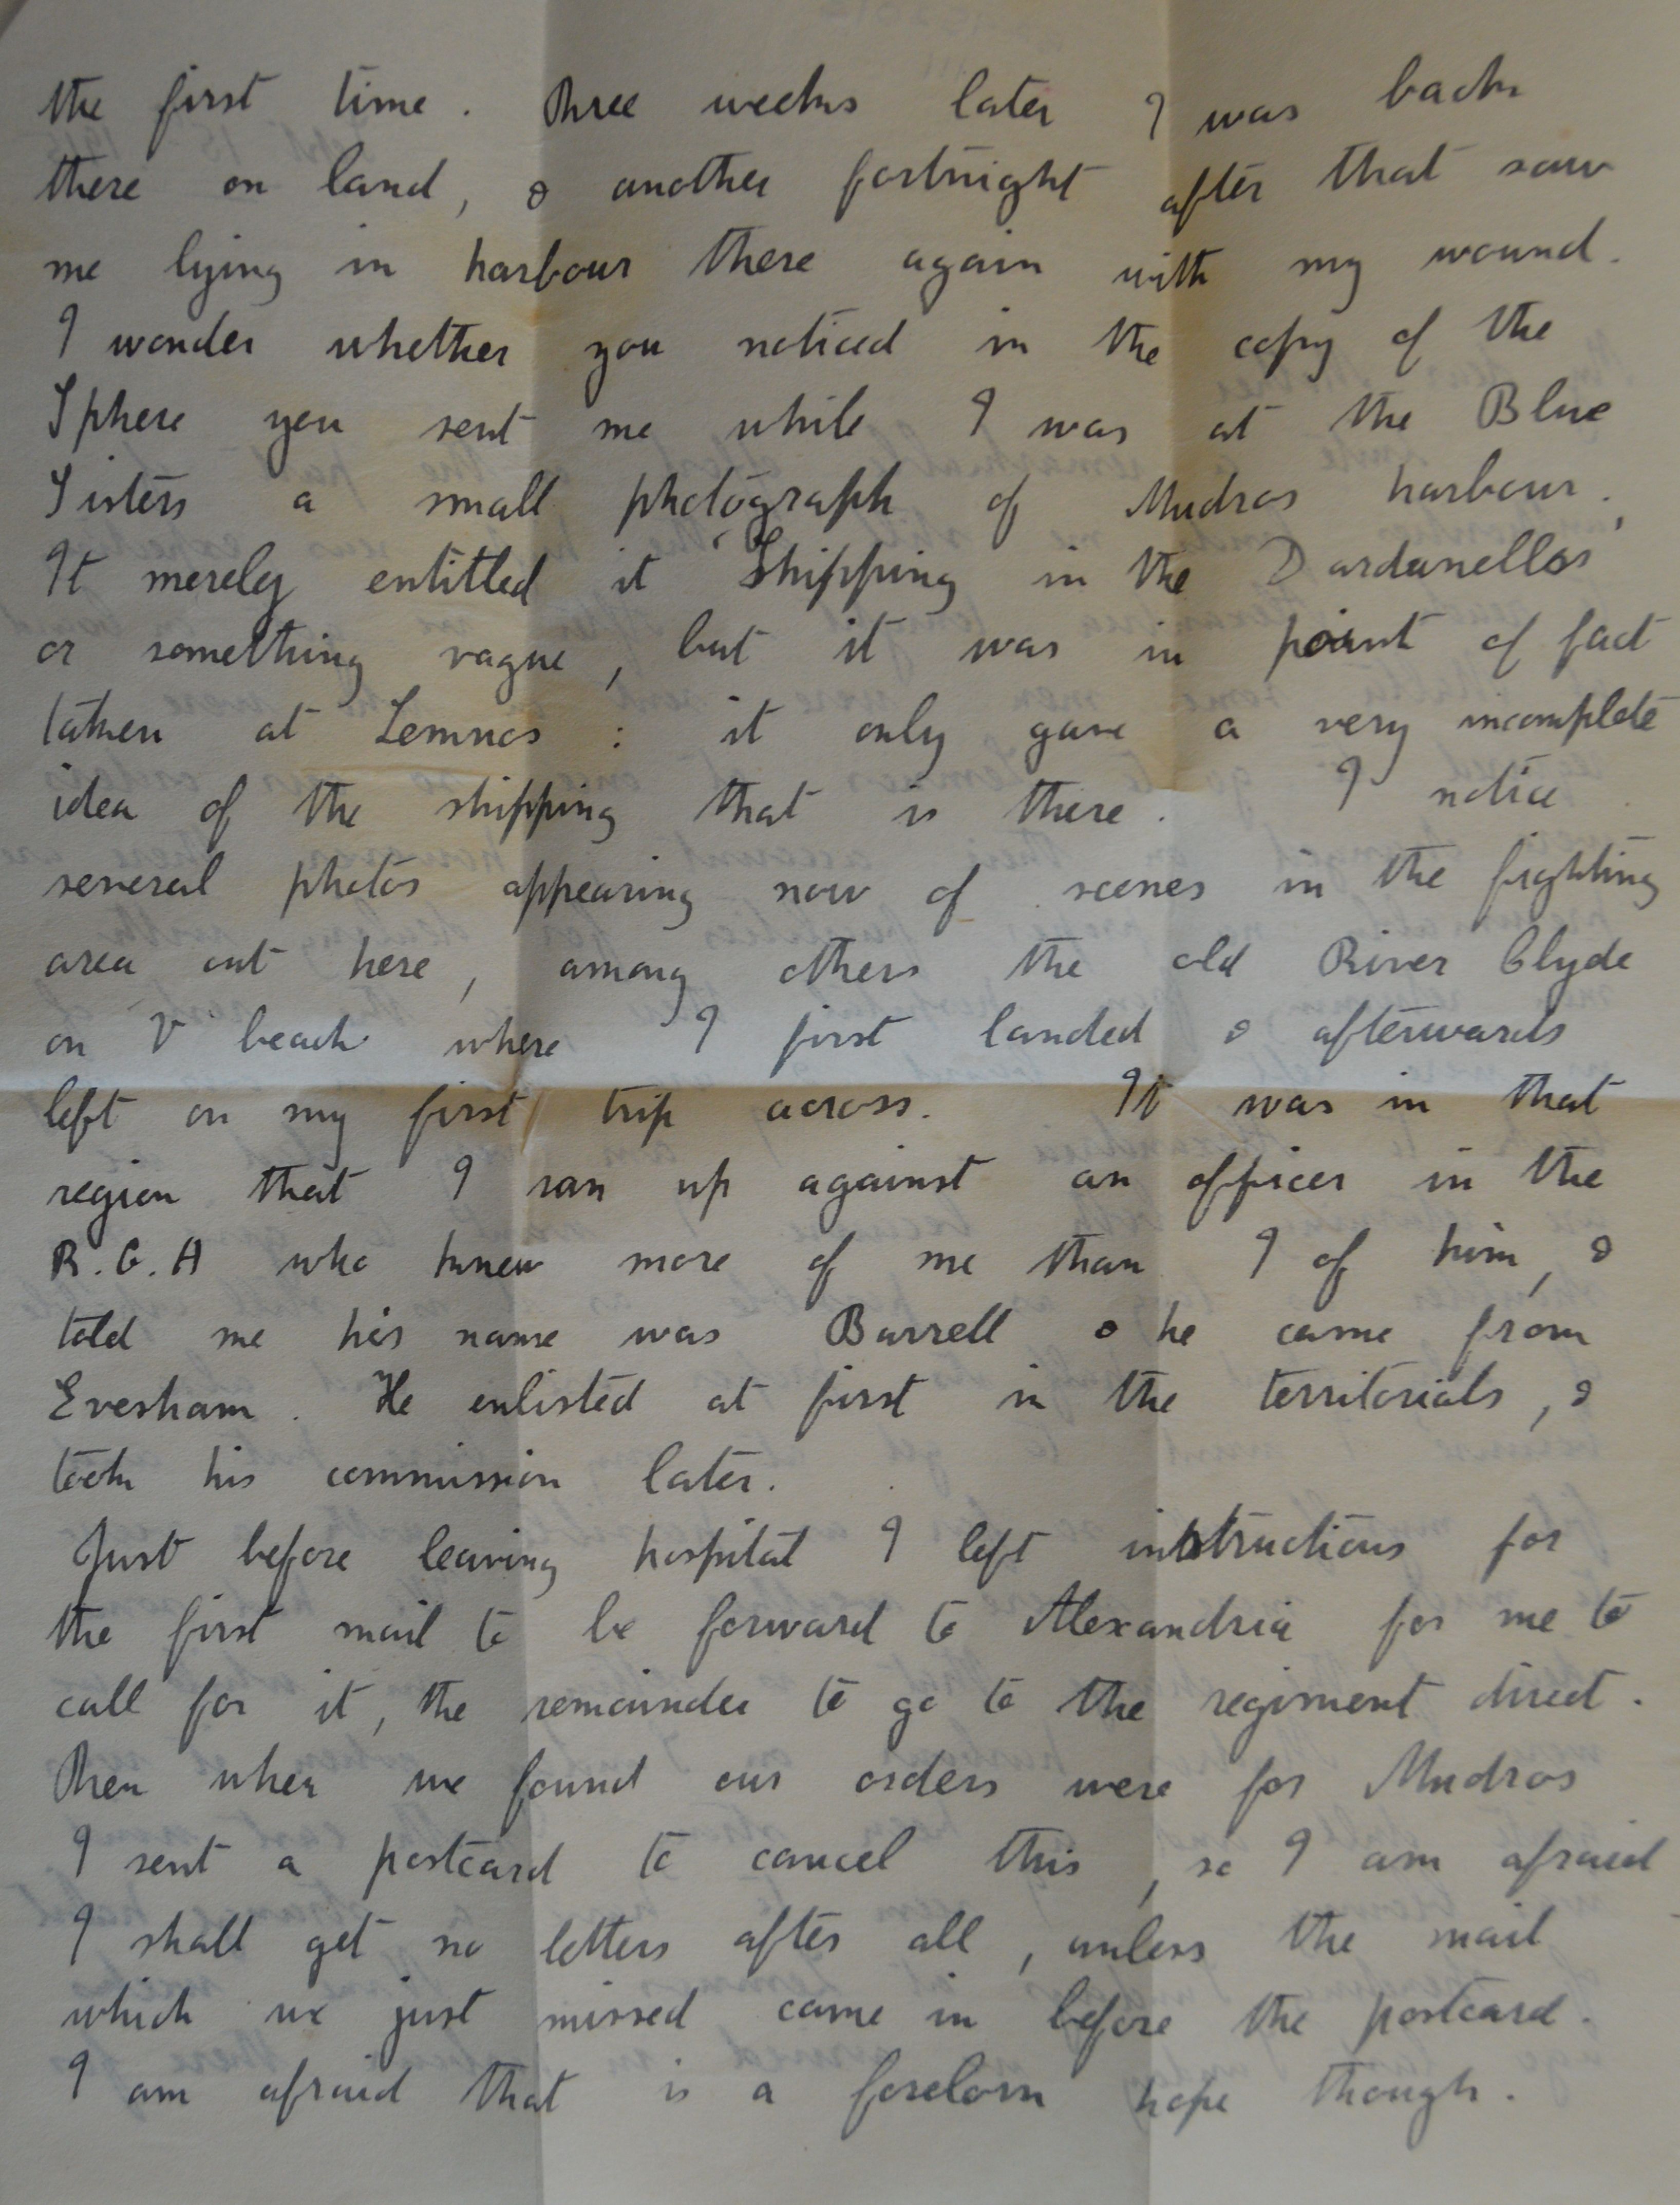 the first time. Three weeks later I was back
there on land, & another fortnight after that saw
me lying in harbour there again with my wound.
I wonder whether you noticed in the copy of the
Sphere you sent me while I was at the Blue
Sisters a small photograph of Mudros harbour.
It merely entitled it 'Shipping in the Dardanelles'
or something vague, but it was in point of fact
taken at Lemnos : it only gave a very incomplete
idea of the shipping that is there. I notice
several photos appearing now of scenes in the fighting
area out here, among others the old River Clyde
on V beach where I first landed & afterwards
left on my first trip across. It was in that
region that I ran up against an officer in the
R.G.A who knew more of me than I of him, &
told me his name was Burrell & he came from
Evesham. He enlisted at first in the territorials, &
took his commission later.
Just before leaving hospital I left instructions for
the first mail to be forward to Alexandria for me to
call for it, the remainder to go to the regiment direct.
Then when we found our orders were for Mudros
I sent a postcard to cancel this, so I am afraid
I shall get no letters after all, unless the mail
which we just missed came in before the postcard.
I am afraid that is a forelorn hope though.